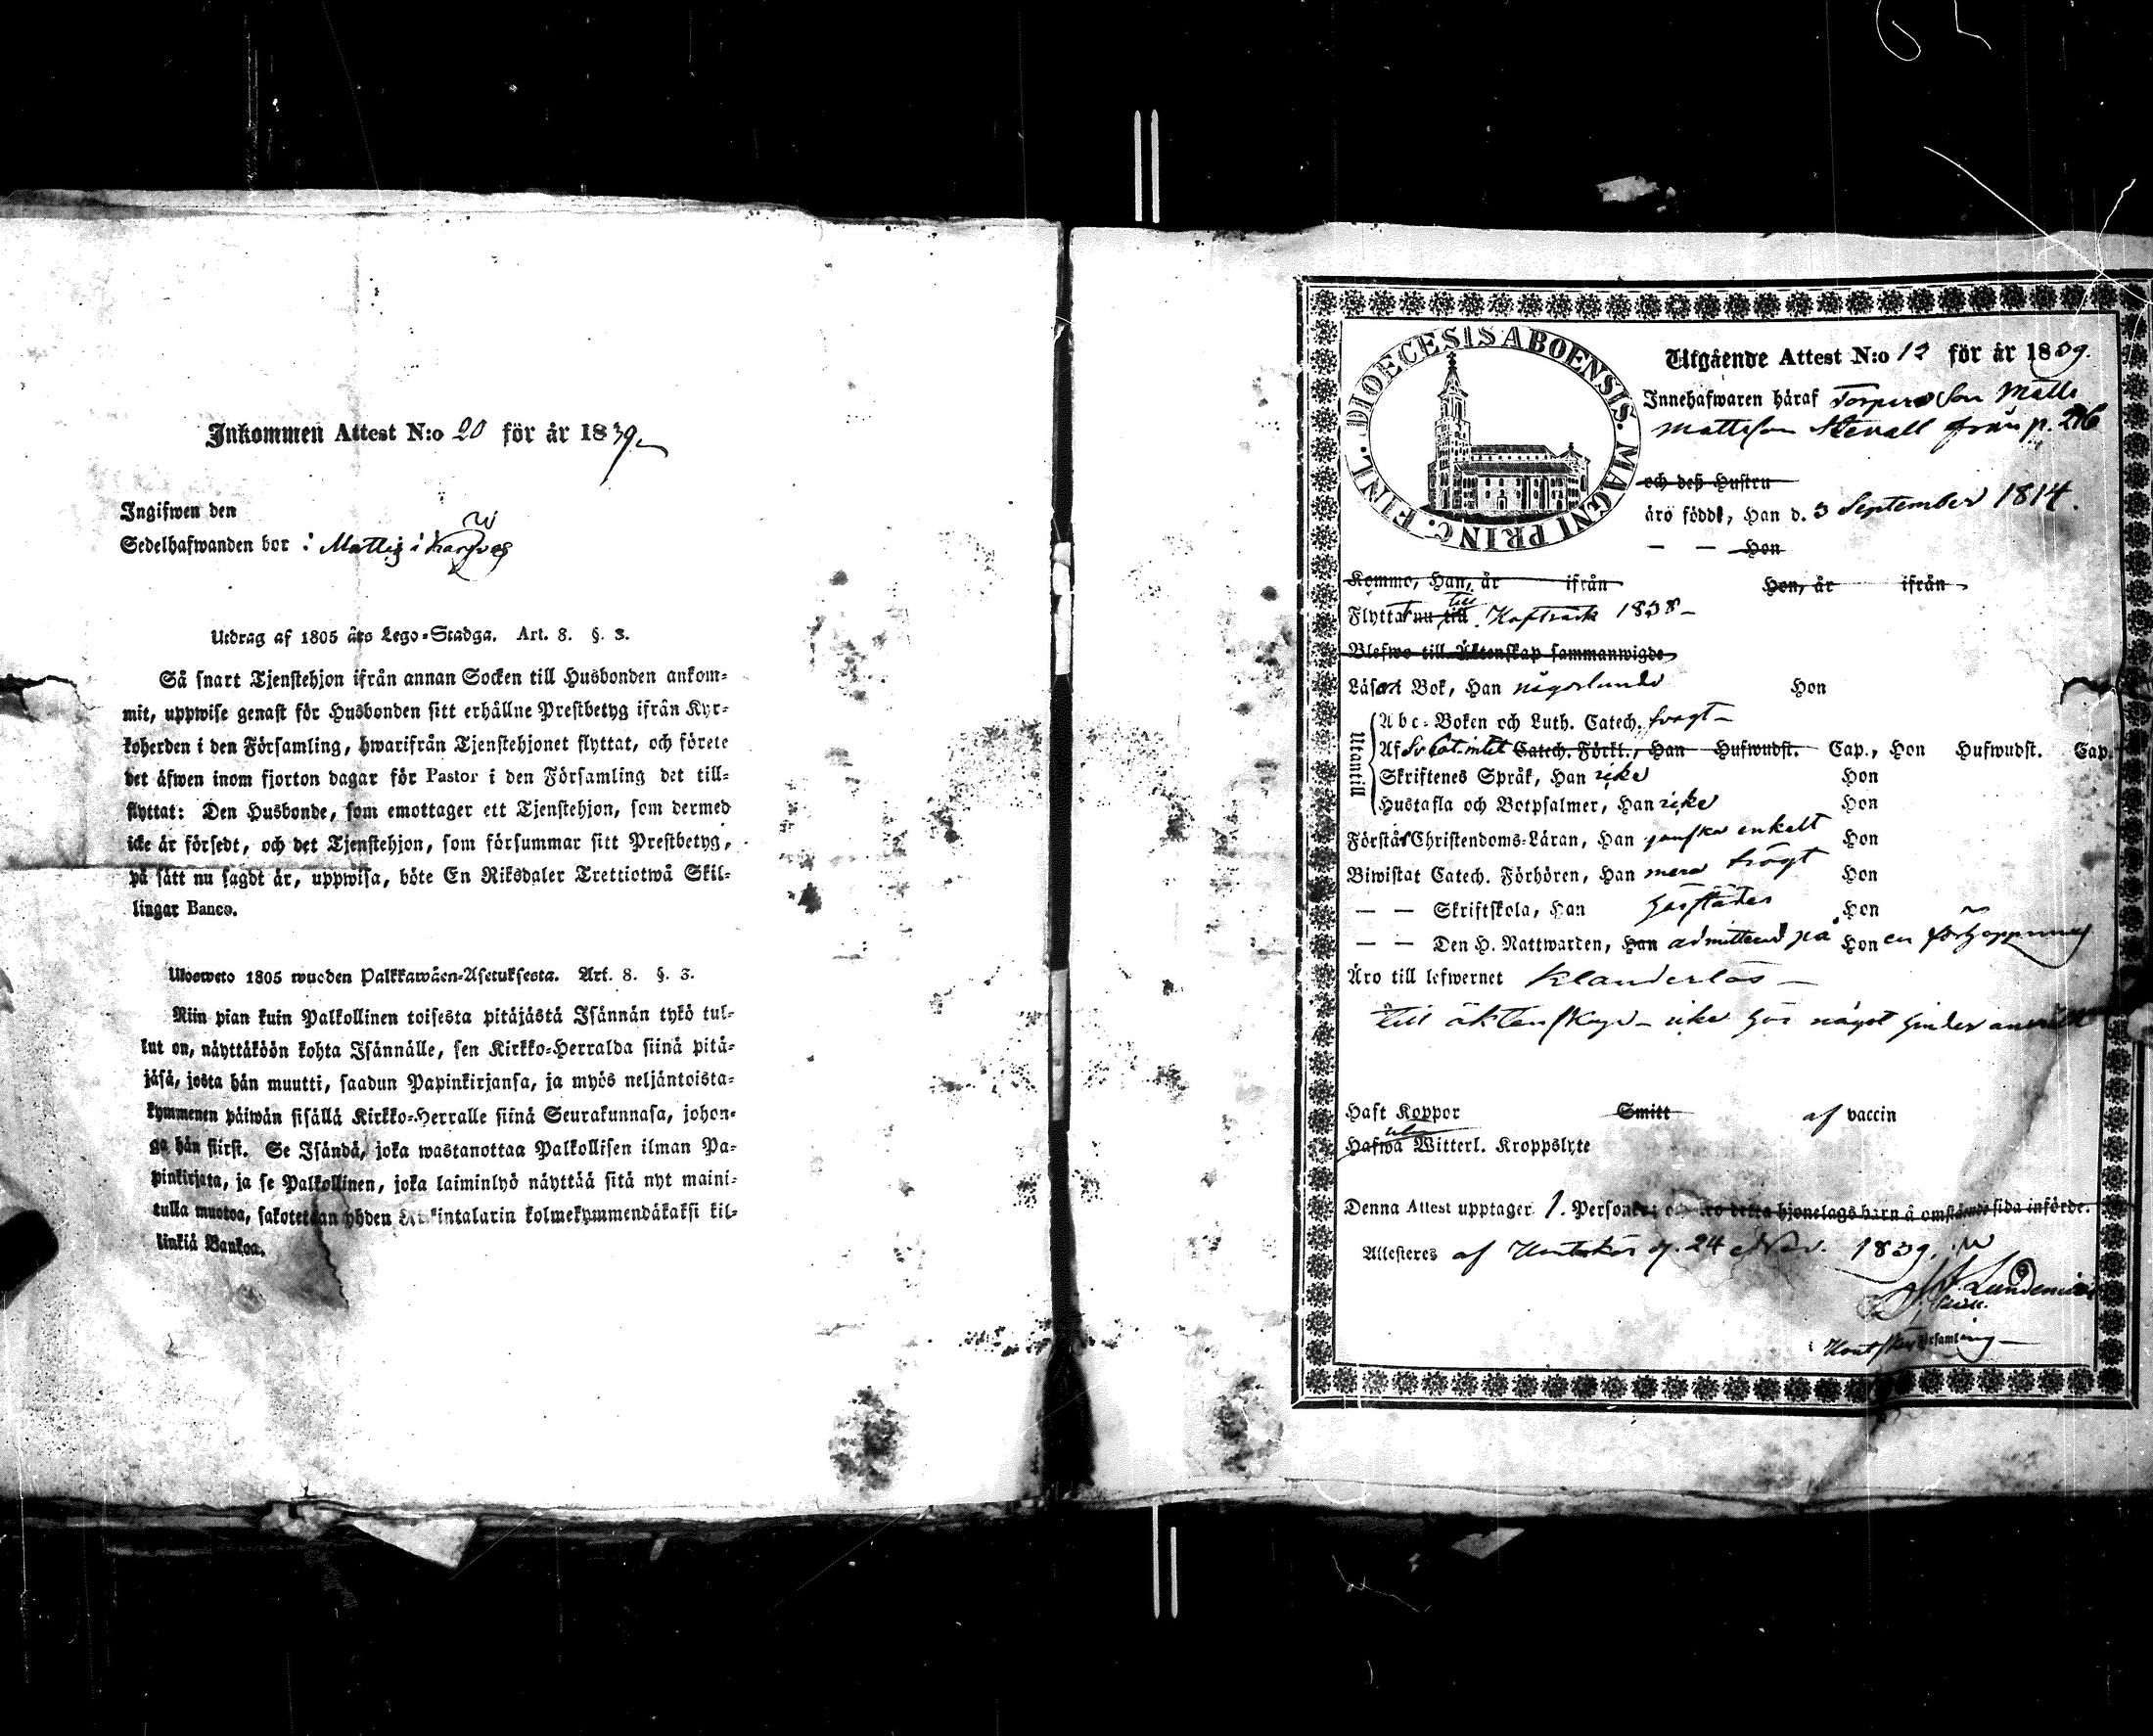 Inkommen Attest N:o 20 för år 1839
Ingifwen den
Sedelhafwanden bor : Mattis i
Utdrag af 1805 års Lego-Stadga. Art. 8. §. 3.
Så snart Tjenstehjon ifrån annan Socken till Husbonden ankom-
mit, uppwise genast för Husbonden sitt erhållne Prestbetyg ifrån Kyr-
koherden i den Församling, hwarifrån Tjenstehjonet flyttat, och förete
det äfwen inom fjorton dagar för Pastor i den Församling det till-
flyttat: Den Husbonde, som emottager ett Tjenstehjon, som dermed
icke är försedt, och det Tjenstehjon, som försummar sitt Prestbetyg,
på sätt nu sagdt är, uppwisa, böte En Riksdaler Trettiotwå Skil-
lingar Banco.
Ulosweto 1805 wuoden Palkkawäen-Asetuksesta. Art. 8. §. 3.
Niin pian kuin Palkollinen toisesta pitäjästä Isännän tykö tul-
lut on, näyttäköön kohta Isännälle, sen Kirkko-Herralda siinä pitä-
jäsä, josta hän muutti, saadun Papinkirjansa, ja myös neljäntoista-
kymmenen päiwän sisällä Kirkko-Herralle siinä Seurakunnasa, johon-
ga hän siirst. Se Isändä, joka wastanottaa Palkollisen ilman Pa-
pinkirjata, ja se Palkollinen, joka laiminlyö näyttää sitä nyt maini-
tulla muotoa, sakotetaan yhden kolmekymmendäkaksi kil-
linkiä Bankoa.
DIOECESIS ABOENSIS. MAGNI PRINC. FINL.
Utgående Attest N:o 12 för år 1839.
Innehafwaren häraf Torpare Son Matts
Mattsson Stenvall från p. 216
och deß Hustru
äro född, Han d. 3 September 1814.
— — Hon
Kommo, Han, år ifrån Hon, år ifrån
Flyttat nu till till 1838 –
Blefwo till Äktenskap sammanwigde
Läser i Bok, Han någorlunda Hon
Utantill
Abc-Boken och Luth. Catech. svagt –
Af Sv. Cat. intet Catech. Förkl., Han Hufwudst. Cap., Hon Hufwudst. Cap.
Skriftenes Språk, Han icke Hon
Hustafla och Botpsalmer, Han icke Hon
Förstår Christendoms-Läran, Han ganska enkelt Hon
Biwistat Catech. Förhören, Han mera trögt Hon
— — Skriftskola, Han härstädes Hon
— — Den H. Nattwarden, Han admitterad på Hon en förhoppning
Äro till lefwernet Klanderlös –
till äktenskap – icke här något hinder anmält
Haft Koppor Smitt af vaccin
Hafwa utan Witterl. Kroppslyte
Denna Attest upptager 1. Person äro detta hjonelags barn å omstående sida införde.
Attesteres af Houtskär d. 24 Nov. 1839.
Lundenius
i Houtskär församling